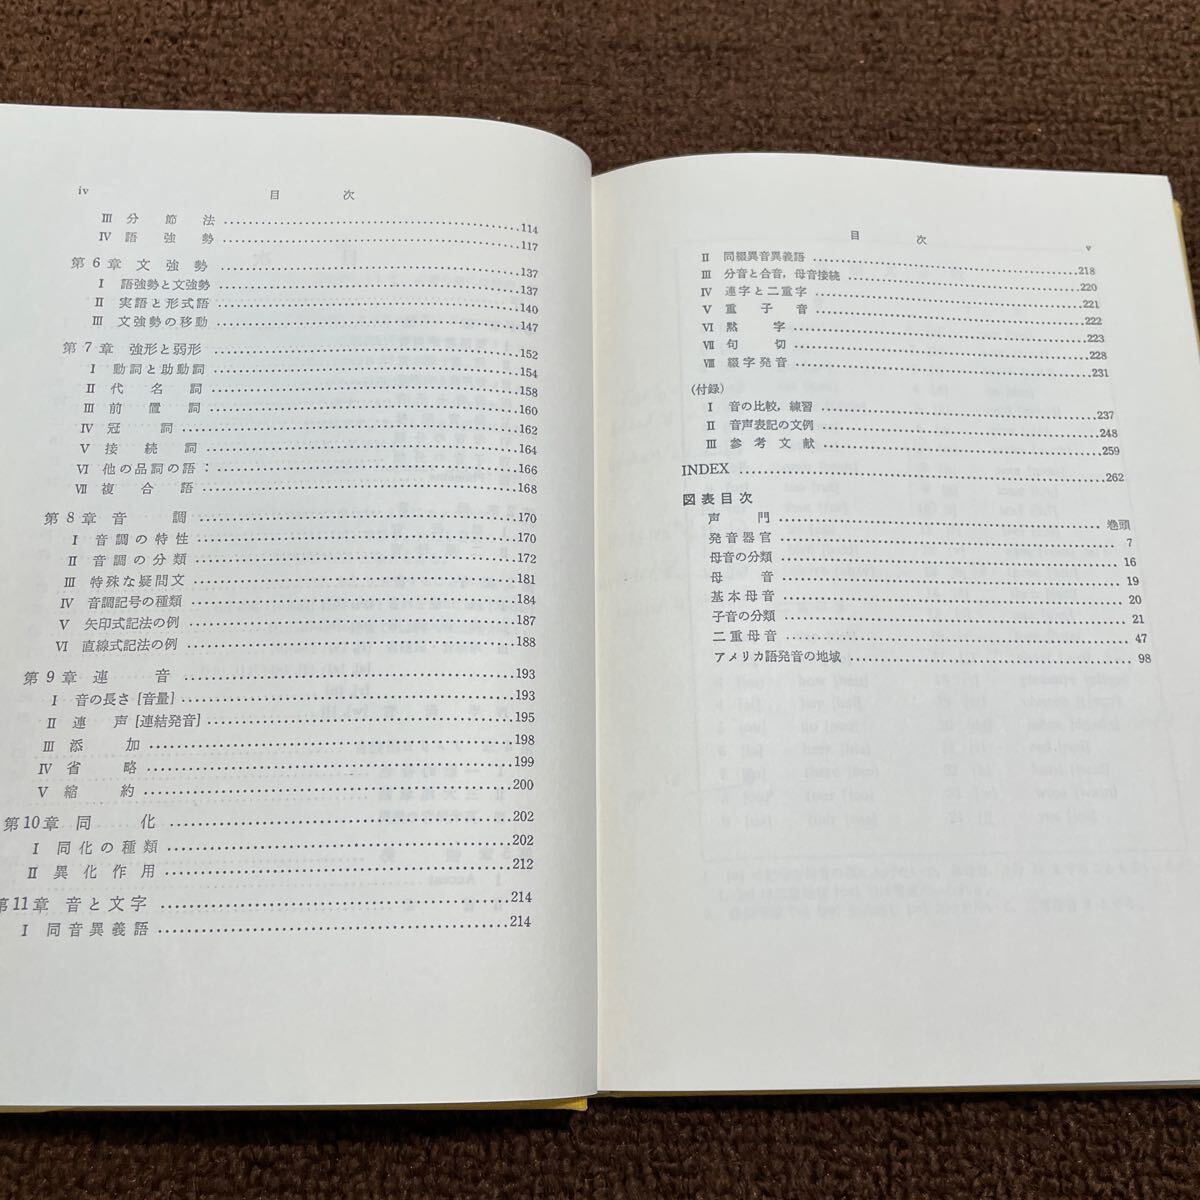 iv 目次
Ⅲ 分節法 114
Ⅳ 語強勢 117
第6章 文強勢 137
Ⅰ 語強勢と文強勢 137
Ⅱ 実語と形式語 140
Ⅲ 文強勢の移動 147
第7章 強形と弱形 152
Ⅰ 動詞と助動詞 154
Ⅱ 代名詞 158
Ⅲ 前置詞 160
Ⅳ 冠詞 162
Ⅴ 接続詞 164
Ⅵ 他の品詞の語: 166
Ⅶ 複合語 168
第8章 音調 170
Ⅰ 音調の特性 170
Ⅱ 音調の分類 172
Ⅲ 特殊な疑問文 181
Ⅳ 音調記号の種類 184
Ⅴ 矢印式記法の例 187
Ⅵ 直線式記法の例 188
第9章 連音 193
Ⅰ 音の長さ[音量] 193
Ⅱ 連声[連結発音] 195
Ⅲ 添加 198
Ⅳ 省略 199
Ⅴ 縮約 200
第10章 同化 202
Ⅰ 同化の種類 202
Ⅱ 異化作用 212
第11章 音と文字 214
Ⅰ 同音異義語 214
目次 v
Ⅱ 同綴異音異義語 218
Ⅲ 分音と合音,母音接続 220
Ⅳ 連字と二重字 221
Ⅴ 重子音 222
Ⅵ 黙字 223
Ⅶ 句切 228
Ⅷ 綴字発音 231
(付録)
Ⅰ 音の比較,練習 237
Ⅱ 音声表記の文例 248
Ⅲ 参考文献 259
INDEX 262
図表目次
声門 巻頭
発音器官 7
母音の分類 16
母音 19
基本母音 20
子音の分類 21
二重母音 47
アメリカ語発音の地域 98